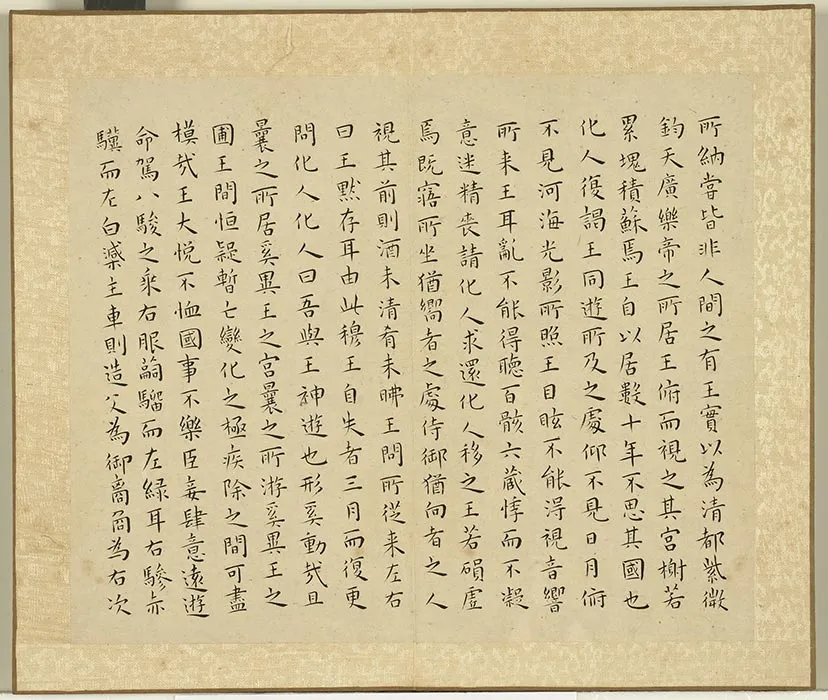 所納嘗皆非人間之有王實以為清都紫微
鈞天廣樂帝之所居王俯而視之其宮榭若
累塊積蘇焉王自以居數十年不思其國也
化人復謁王同遊所及之處仰不見日月俯
不見河海光影所照王目眩不能得視音響
所来王耳亂不能得聽百骸六藏悸而不凝
意迷精喪請化人求還化人移之王若磒虛
焉既寤所坐猶嚮者之處侍御猶向者之人
視其前則酒未清肴未昲王問所從来左右
曰王默存耳由此穆王自失者三月而復更
問化人化人曰吾與王神遊也形奚動哉且
曩之所居奚異王之宮曩之所游奚異王之
圃王間恒疑暫亡變化之極疾除之間可盡
模哉王大悅不恤國事不樂臣妾肆意遠遊
命駕八駿之乘右服騮而左綠耳右驂赤
驥而左白主車則造父為御為右次